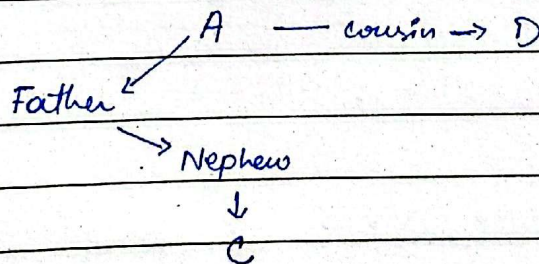 A — cousin → D
Father
Nephew
C